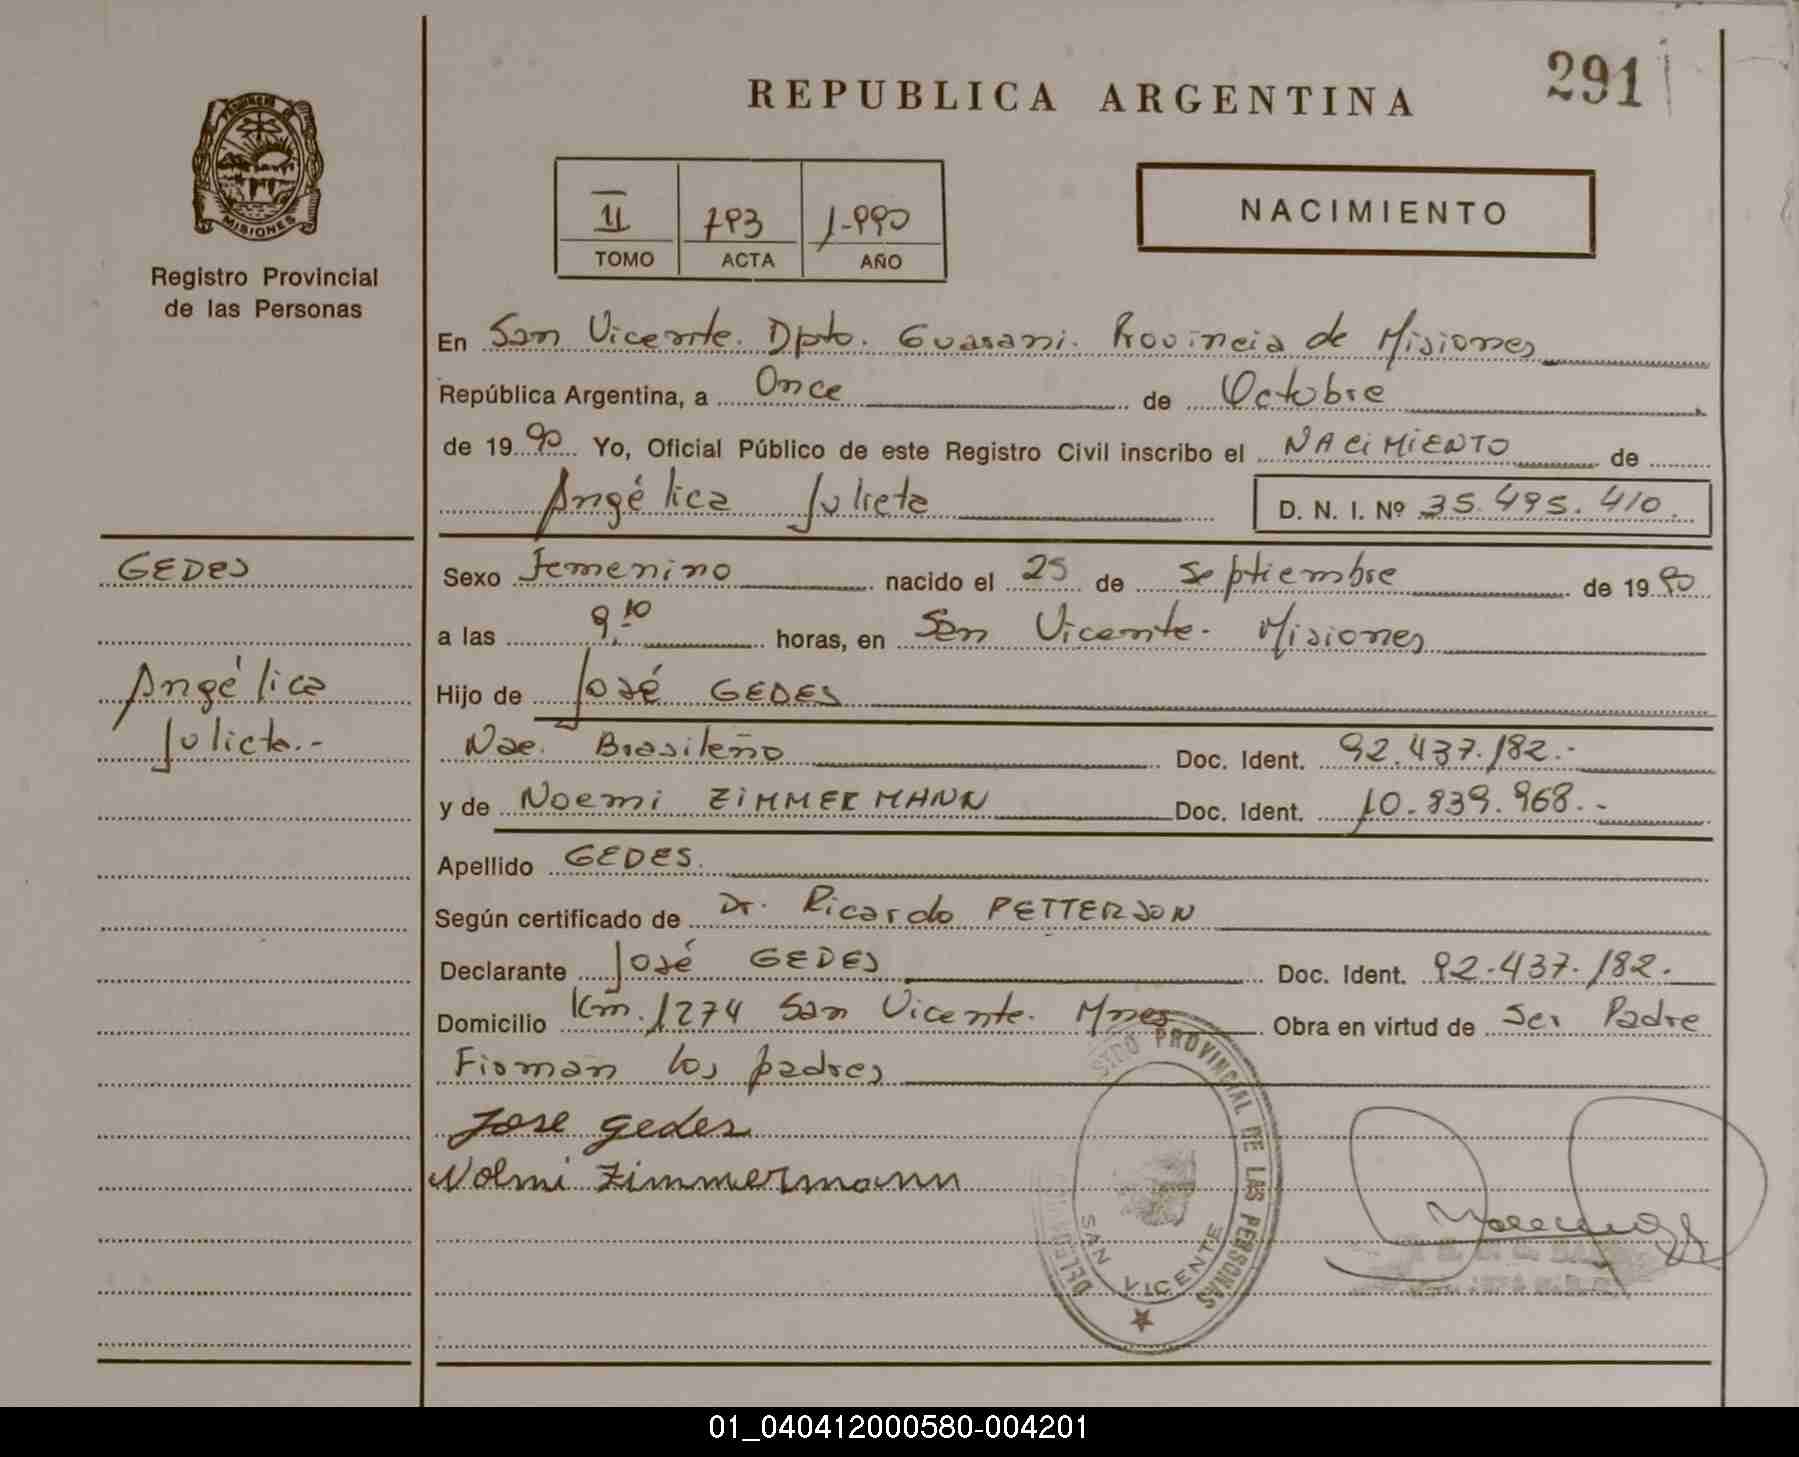 REPUBLICA ARGENTINA
291
PROVINCIA DE
MISIONES
Registro Provincial
de las Personas
II 793 1-990
TOMO ACTA AÑO
NACIMIENTO
En San Vicente. Dpto. Guarani. Provincia de Misiones
República Argentina, a Once de Octubre
de 1990 Yo, Oficial Público de este Registro Civil inscribo el NACIMIENTO de
Angélica Julieta D. N. I. Nº 35.495.410.
GEDES
Angélica
Julieta.-
Sexo Femenino nacido el 25 de Septiembre de 1990
a las 9,10 horas, en San Vicente- Misiones
Hijo de José GEDES
Nac. Brasileño Doc. Ident. 92.437.182.-
y de Noemi ZIMMERMANN Doc. Ident. 10.839.968.-
Apellido GEDES.
Según certificado de Dr. Ricardo PETTERSON
Declarante José GEDES Doc. Ident. 92.437.182.
Domicilio Km. 1274 San Vicente. Mnes Obra en virtud de Ser Padre
Firman los padres
Jose gedes
Nolmi Zimmermann
PROVINCIAL DE LAS PERSONAS
SAN VICENTE
01_040412000580-004201